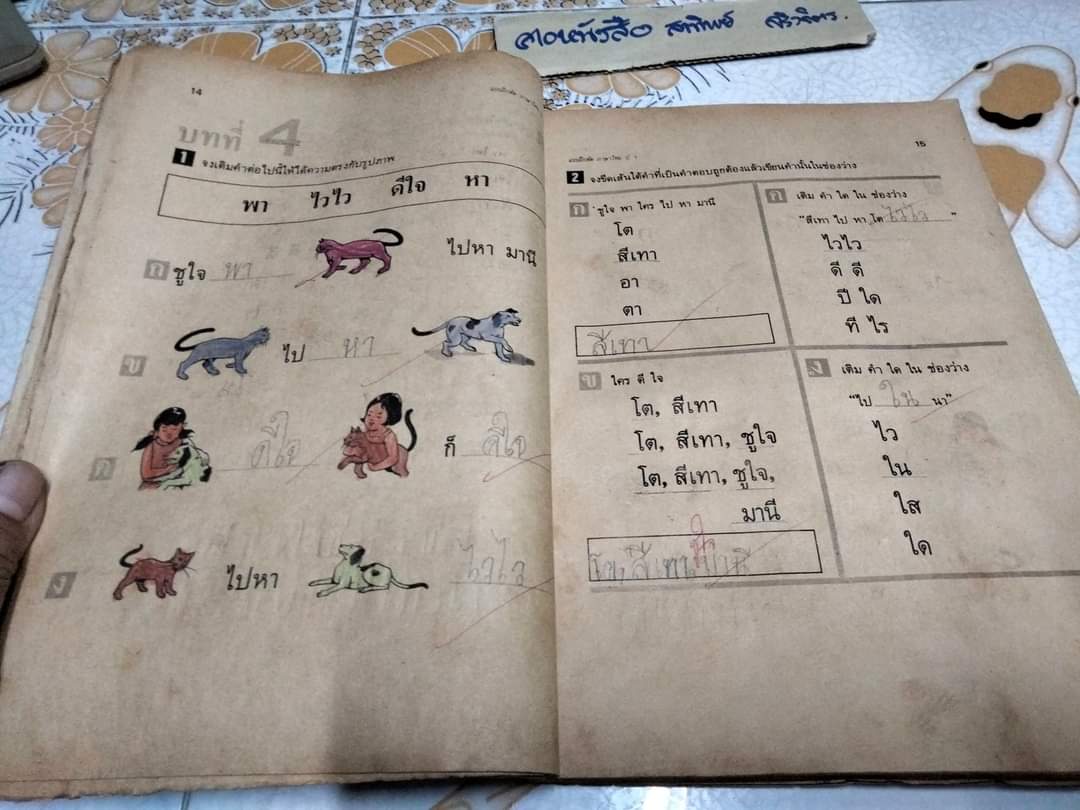 สุทิพย์
14
แบบฝึกหัด ภาษาไทย
บทที่ 4
1 จงเติมคำต่อไปนี้ให้ได้ความตรงกับรูปภาพ
พา ไวไว ดีใจ หา
ก ชูใจ พา ไปหา มานี
ข ไป หา
ค ดีใจ ก็ ดีใจ
ง ไปหา ไวไว
แบบฝึกหัด ภาษาไทย ป. ๑
15
2 จงขีดเส้นใต้คำที่เป็นคำตอบถูกต้องแล้วเขียนคำนั้นในช่องว่าง
ก ชูใจ พา ใคร ไป หา มานี
โต
สีเทา
อา
ตา
สีเทา
ข ใคร ดี ใจ
โต, สีเทา
โต, สีเทา, ชูใจ
โต, สีเทา, ชูใจ,
มานี
ค เติม คำ ใด ใน ช่องว่าง
"สีเทา ไป หา โต ไวไว "
ไวไว
ดี ดี
ปี ใด
ที ไร
ง เติม คำ ใด ใน ช่องว่าง
"ไป ใน นา"
ไว
ใน
ใส
ใด